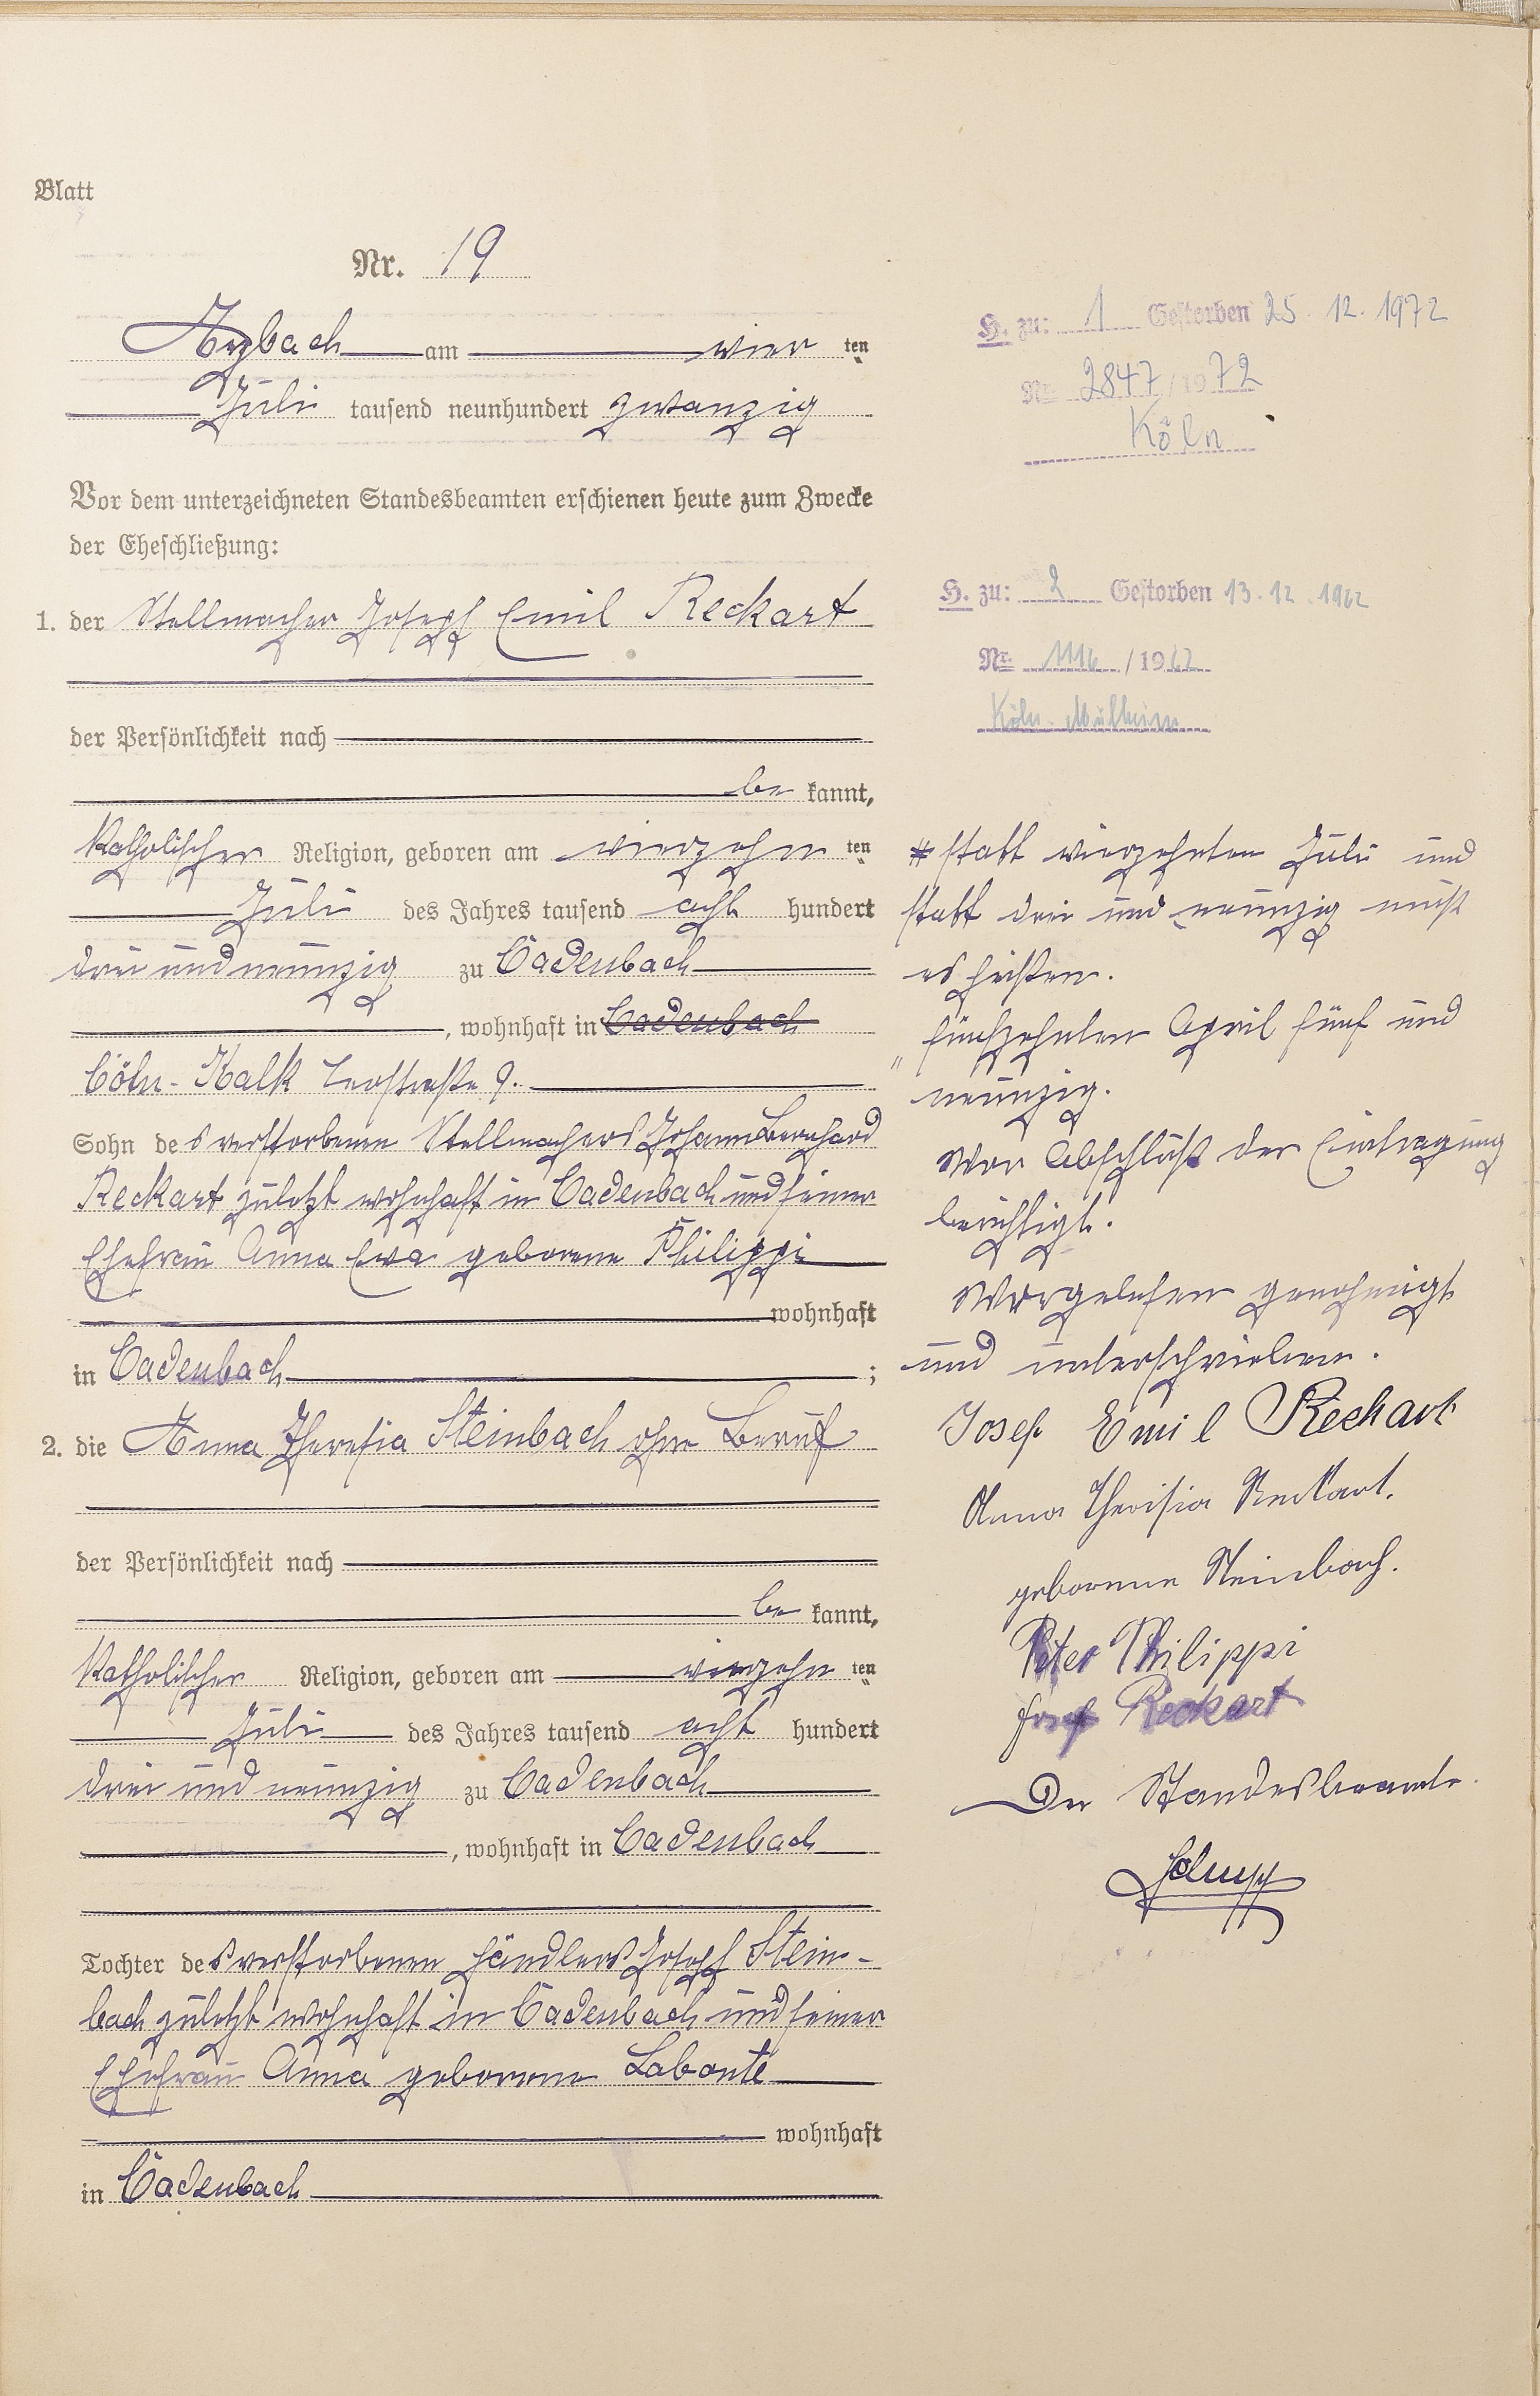 Blatt
Nr. 19
Arzbach am vier ten
Juli tausend neunhundert zwanzig
Vor dem unterzeichneten Standesbeamten erschienen heute zum Zwecke
der Eheschließung:
1. der Stellmacher Joseph Emil Reckart
der Persönlichkeit nach
be kannt,
katholischer Religion, geboren am vierzehn ten
Juli des Jahres tausend acht hundert
drei und neunzig zu Cadenbach
, wohnhaft in Cadenbach
Cöln-Kalk Leostraße 9.
Sohn des verstorbenen Stellmachers Johann Bernhard
Reckart zuletzt wohnhaft in Cadenbach und seiner
Ehefrau Anna Eva geborene Philippi
wohnhaft
in Cadenbach ;
2. die Anna Theresia Steinbach ohne Beruf
der Persönlichkeit nach
be kannt,
katholischer Religion, geboren am vierzehn ten
Juli des Jahres tausend acht hundert
drei und neunzig zu Cadenbach
, wohnhaft in Cadenbach
Tochter des verstorbenen Händlers Joseph Stein-
bach zuletzt wohnhaft in Cadenbach und seiner
Ehefrau Anna geborene Labonte
wohnhaft
in Cadenbach
H. zu: 1 Gestorben 25. 12. 1972
Nr. 2847/1972
Köln
H. zu: 2 Gestorben 13.12.1962
Nr. 1116/1962
Köln-Mülheim
* statt vierzehnten Juli und
statt drei und neunzig muß
es heißen.
"fünfzehnten April fünf und
neunzig.
Vor Abschluß der Eintragung
berichtigt.
Vorgelesen genehmigt
und unterschrieben.
Josef Emil Reckart
Anna Theresia Reckart.
geborene Steinbach.
Peter Philippi
Josef Reckart
Der Standesbeamte.